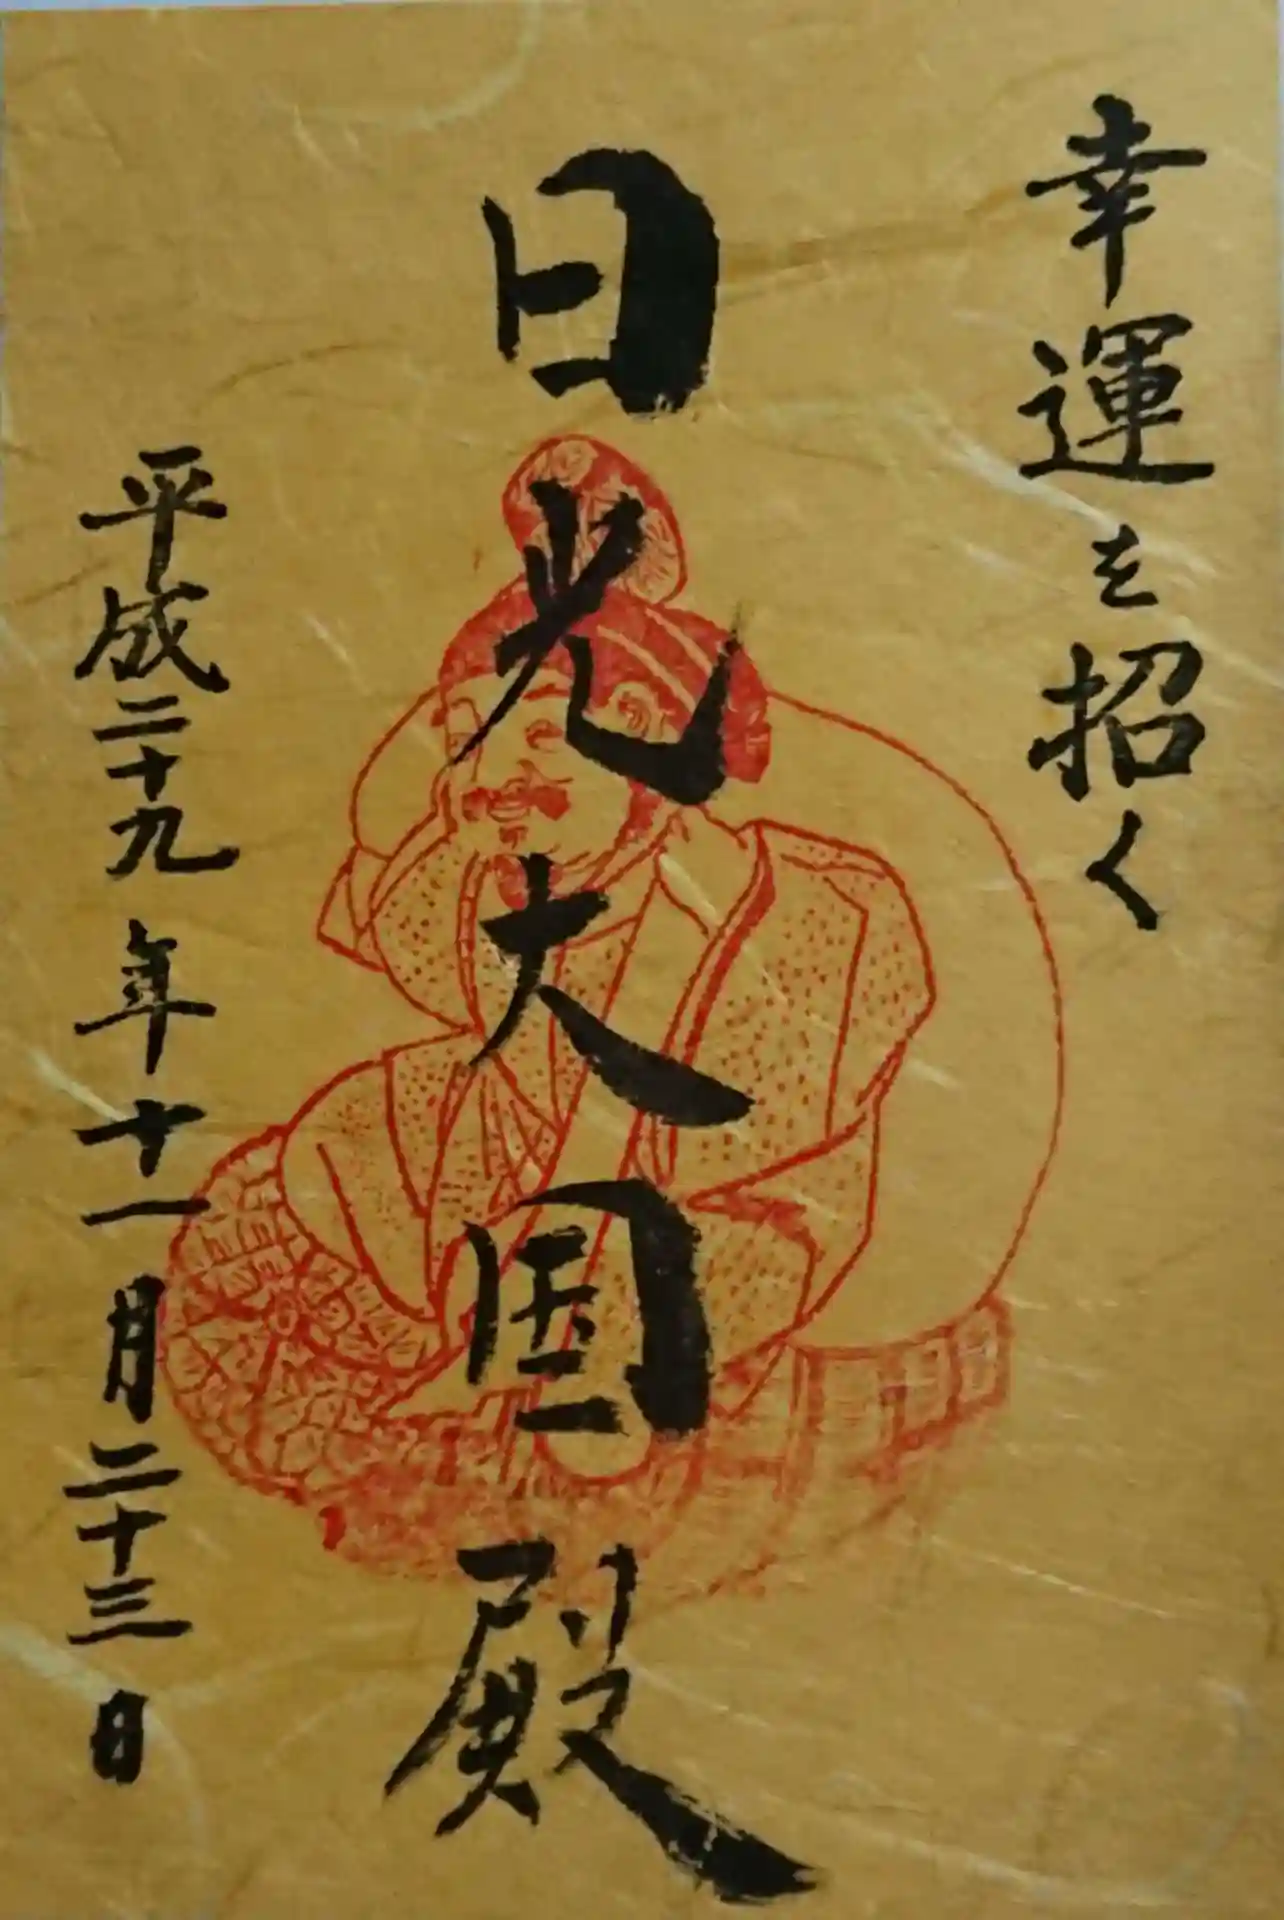 幸運を招く
日光大国殿
平成二十九年十一月二十三日